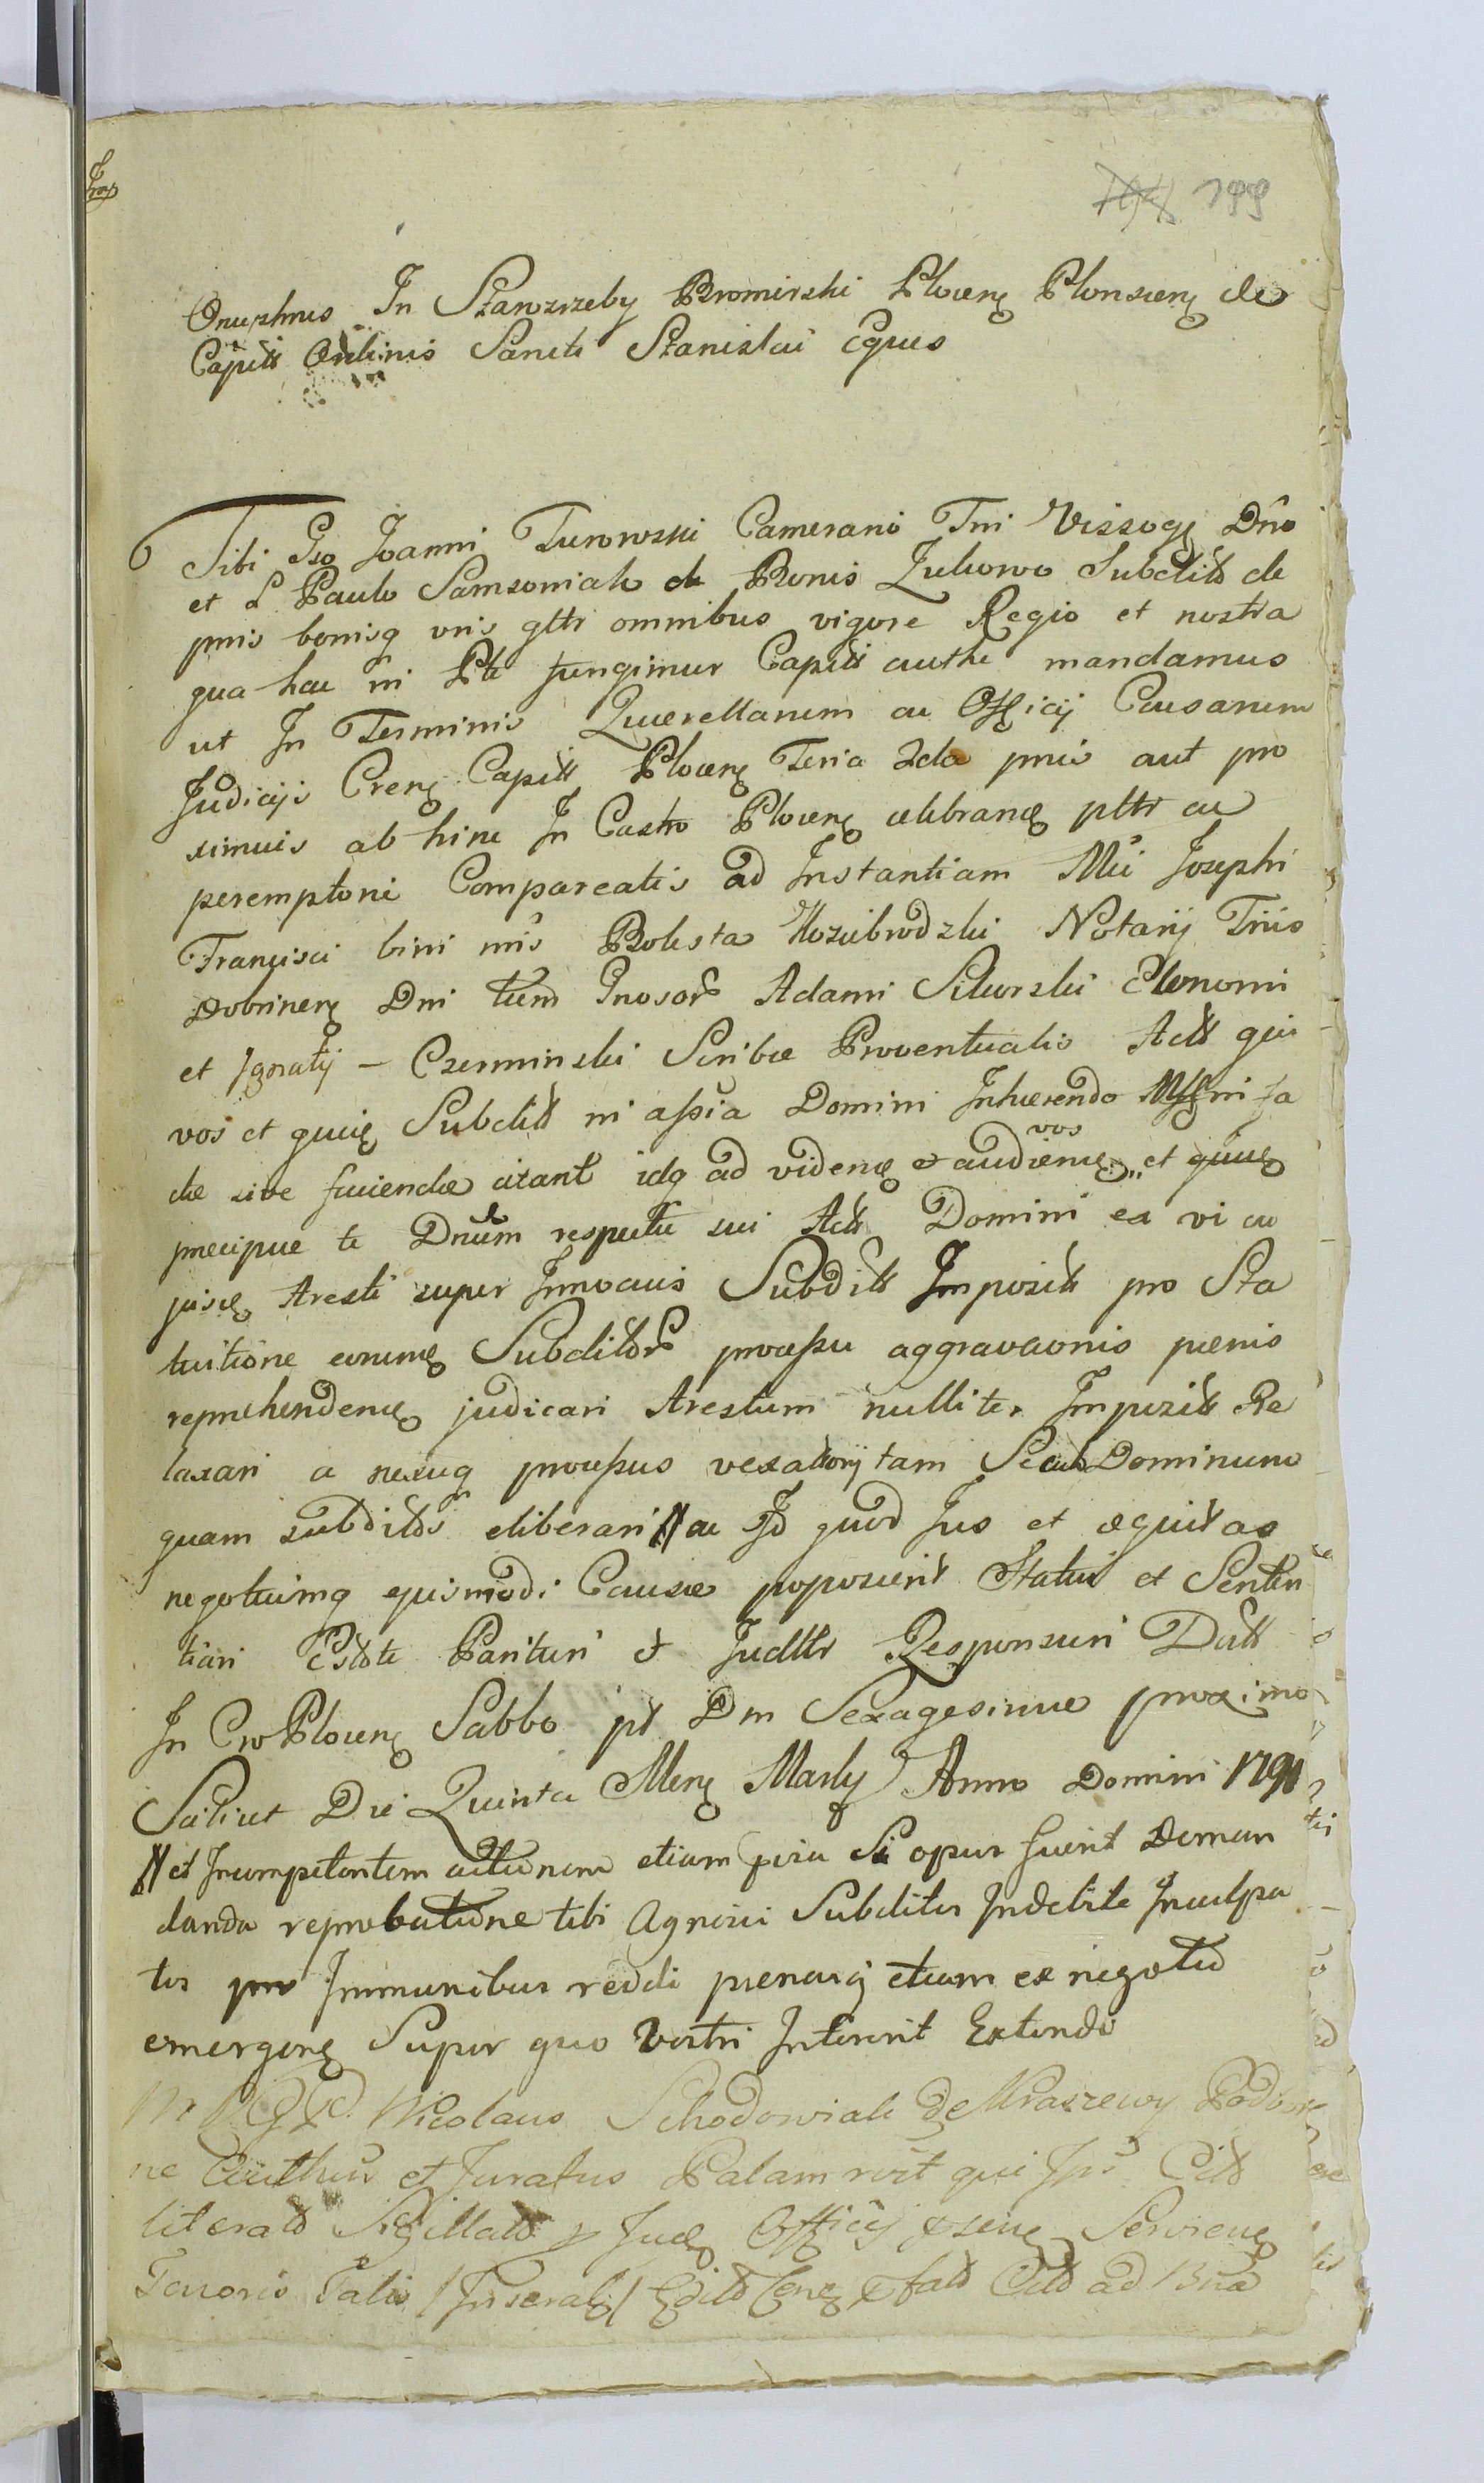 199
Onuphrius In Starozrzeby Bromirski Plocen Plonscen de
Capitt Ordinis Sancti Stanislai Eques
Tibi Gso Joanni Turowski Camerario Tni Vissogr Dno
et L Paulo Samsoniak de Bonis Zukowo Subditt de
pnis bonisq vris gltr omnibus vigore Regio et nostra
qua hac in Pte fungimur Capitt authe mandamus
ut In Terminis Querellarum ac Officij Causarum
Judicijs Cren Capitt Plocen Feria 2da pnis aut pro
ximis ab hinc In Castro Plocen celebran pltr ac
peremptorie Compareatis ad Instantiam Mci Josephi
Francisci bini nnis Bolesta Kozibrodzki Notarij Tris
Dobrinen Dni tum Gnosor Adami Sikorski Economi
et Ignatij - Czerminski Scribæ Proventualis Actt qui
vos et Subditt in assia Domini Inhærendo fa
ctæ sive faciendæ citant idq ad viden et audien vos et
præcipue te Dnum respectu sui Actt Domini ex vi cu
jusd Aresti super Innocuis Subditt Impositt pro Sta
tuitione eorund Subdittor processu aggravaonis pænis
reprehenden judicari Arestum nulliter Impositt Re
laxari a nexuq processus vexatorij tam Dominum
quam subditos eliberari # ac Id quod Jus et æquitas
negotiumq ejusmodi Causæ poposcerit Statui et Senten
tiari Estote Parituri et Judltr Responsuri Datt
In Cro Plocen Sabbo pt Dm Sexagesimæ proximo
Scilicet Die Quinta Men Martij Anno Domini 1791
# et Incompetentem actionem etiam Si opus fuerit Deman
danda reprobatione tibi Agnosci Subditos Indebite Inculpa
tos pro Immunibus reddi pænasq etiam ex negotio
emergen Super quo Vestri Intererit Extendi
Nicolaus Schodowiak de Kraszewy Podbor
ne Authus et Juratus Palam rcit qui Ips Citt
literatt Sigillatt p Jud Officij Servien
Tenoris Talis / Inseratr / Editt Citt ad Bna